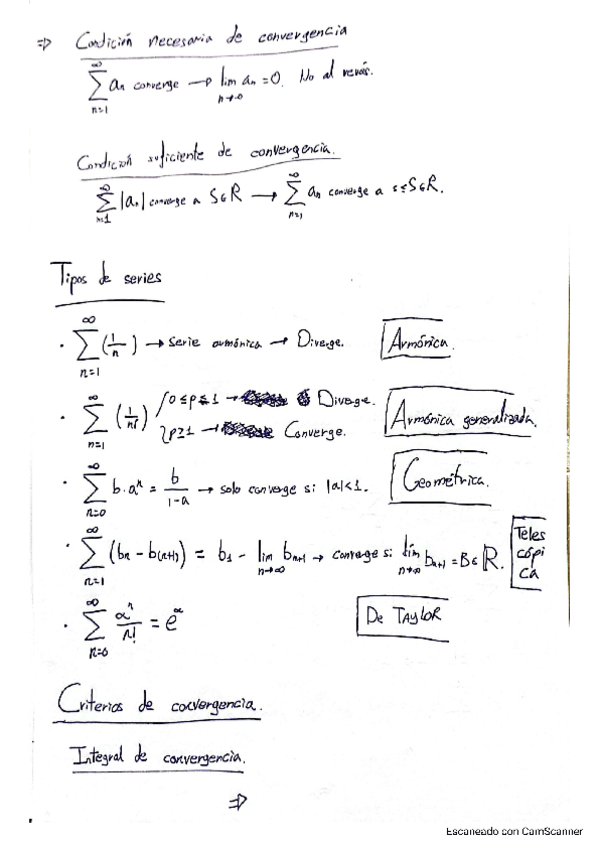 ⇒ Condición necesaria de convergencia
∞∑n=1 an converge → lim n→∞ an = 0. No al revés.
Condición suficiente de convergencia.
∞∑n=1 |an| converge a S∈R → ∞∑n=1 an converge a s≤S∈R.
Tipos de series
· ∞∑n=1 (1/n) → Serie armónica → Diverge. Armónica.
· ∞∑n=1 (1/n^p) 0≤p≤1 → Diverge.
p≥1 → Converge. Armónica generalizada.
· ∞∑n=0 b·a^n = b/(1-a) → solo converge si |a|<1. Geométrica.
· ∞∑n=1 (bn - b(n+1)) = b1 - lim n→∞ bn+1 → converge si lim n→∞ bn+1 = B∈R. Teles
cópi
ca
· ∞∑n=0 α^n/n! = e^α De TAYLOR
Criterios de convergencia.
Integral de convergencia.
⇒
Escaneado con CamScanner